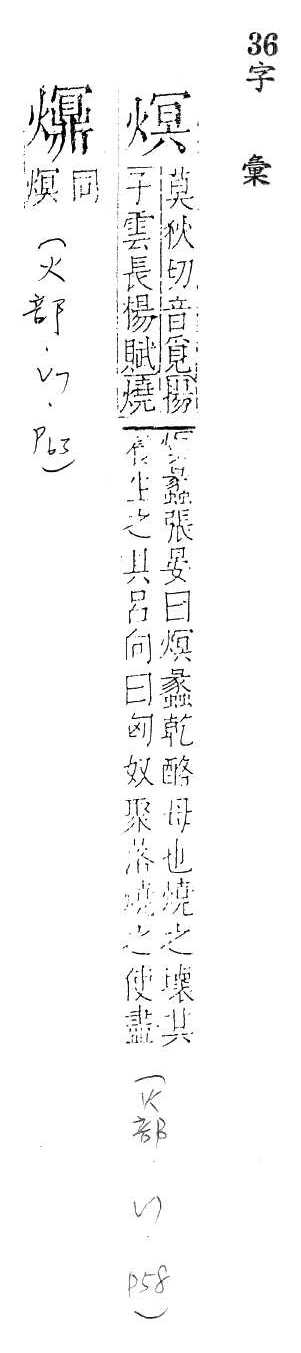 36字 彙
熐
莫狄切音覓揚
子雲長楊賦燒
熐蠡張晏曰熐蠡乾酪母也燒之壞其
養生之具呂向曰匈奴聚落燒之使盡
(火部.い.P58)
同
熐
(火部.い.P63)